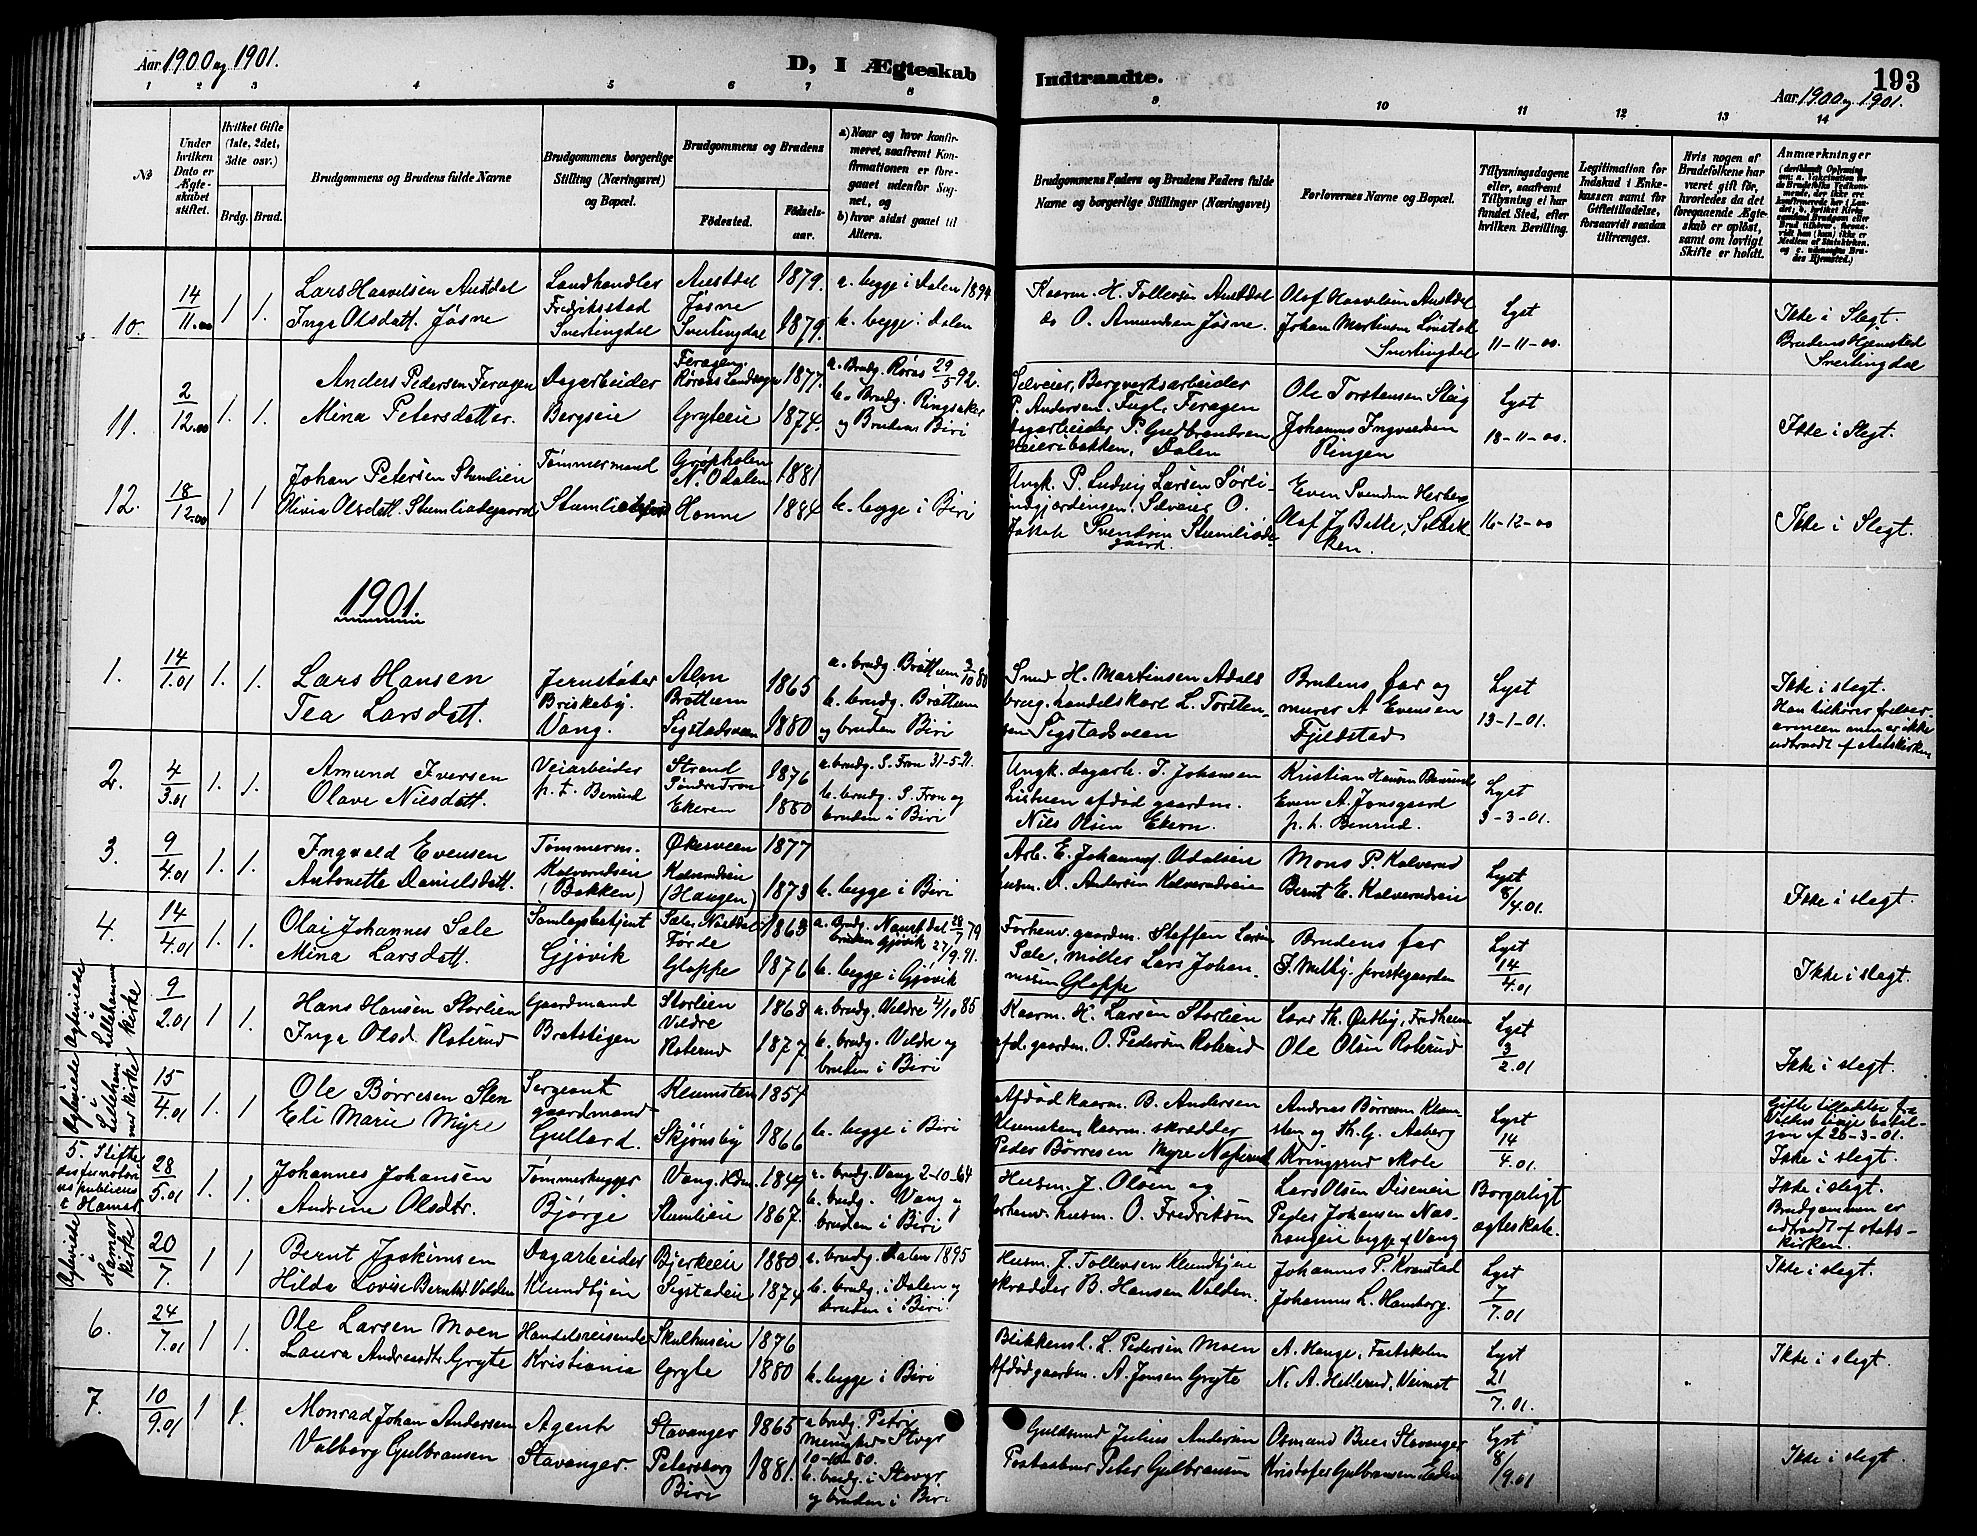 Aar 1900 og 1901.
D, I Ægteskab
Indtraadte.
193
Aar 1900 og 1901.
1 2 3 4 5 6 7 8 9 10 11 12 13 14
No
Under hvilken Dato er Ægteskabet stiftet.
Hvilket Gifte (1ste, 2det, 3dte osv.)
Brdg. Brud.
Brudgommens og Brudens fulde Navne
Brudgommens borgerlige Stilling (Næringsvei) og Bopæl.
Brudgommens og Brudens
Fødested.
Fødselsaar.
a) Naar og hvor konfirmeret, saafremt Konfirmationen er foregaaet udenfor Sognet, og
b) hvor sidst gaaet til Alters.
Brudgommens Faders og Brudens Faders fulde Navne og borgerlige Stillinger (Næringsvei)
Forlovernes Navne og Bopæl.
Tillysningsdagene eller, saafremt Tillysning ei har fundet Sted, efter hvilken Bevilling.
Legitimation for Indskud i Enkekassen samt for Giftetilladelse, forsaavidt saadan tiltrænges.
Hvis nogen af Brudefolkene har været gift før, hvorledes da det foregaaende Ægteskab er opløst, samt om lovligt Skifte er holdt.
Anmærkninger
10. 14/11.00 1 1.
Lars Haavelsen Austdal
Inga Olsdatt. Jøsne
Landhandler
Fredriksstad
Snertingdal
Austdal
Jøsne
Snertingdal
1879.
1879.
a. begge i Dalen 1894
b. begge i Dalen
Kaarm. H. Tollevsen Austdal
do O. Amundsen Jøsne.
Olaf Haavelsen Austdal
Johan Martinsen
Snertingdal
Lyst
11-11-00.
Ikke i Slegt.
Brudens Hjemsted
Snertingdal
11. 2/12.00 1. 1.
Anders Pedersen Feragen
Mina Petersdatter.
Dagarbeider
Bergseie
Feragen
Røraas Landsogn
Gryteeie
1877.
1874.
a. Brudg. Røros 29/5 92.
b. Brudg. Ringsaker
og Bruden Biri
Selveier, Bergverksarbeider
P. Andersen Fugl, Feragen
Dagarbeider P. Gudbrandsen
Meieribakken, Dalen
Ole Torstensen Steig
Johannes Ingvaldsen
Ringen
Lyst
18-11-00.
Ikke i Slegt.
12. 18/12.00 1 1
Johan Petersen Stumlien
Olivia Olsdatt. Stumliødegaard
Tømmermand
N. Odalen
Honne
1881
1884
b. begge i Biri
Ungk. P. Ludvig Larsen
Selveier O.
Jakob Svendsen Stumliøde-
gaard.
Even Svendsen
16-12-00
Ikke i Slegt.
1901.
1. 14/1.01 1. 1.
Lars Hansen
Tea Larsdatt.
Jernstøber
Briskeby.
Vang.
Alm
Brøttum
Sigstadsveen
1865
1880
a. brudg. Brøttum 3/10 80
b. brudg. Brøttum
og bruden Biri
Smed H. Martinsen Adals
brug. handelskarl L. Torsten-
sen Sigstadsveen
Brudens far og
murer A Evensen
Fjeldstad
Lyst
13-1-01.
Ikke i slegt.
Han tilhører frelses-
armeen men er ikke
udtraadt af statskirken
2. 4/3.01 1. 1.
Amund Iversen
Olave Nilsdatt.
Veiarbeider
p. t. Benrud
Strand
Søndre Fron
Ekeren
1876
1880
a. brudg. S. Fron 31-5-91.
b. brudg. S. Fron og
bruden i Biri
Ungk. dagarb. I. Johansen
afdød gaardm.
Nils Olsen Ekern.
Kristian Hansen Benrud
Even A. Jonsgaard
p. t. Benrud.
Lyst
3-3-01.
3. 9/4.01 1. 1.
Ingvald Evensen
Antonette Danielsdatt.
Tømmerm.
Kalverudseien
(Bakken)
Økerveen
Kalverudeien
(Haugen)
1877
1873
b. begge i Biri
Arb. E. Johannes. Odalseie
husm. D. Andersen Kalverudeie
Mons P. Kalverud
Bernt E. Kalverudeie
Lyst
8/4.01.
Ikke i slegt.
4. 14/4.01 1. 1.
Olai Johannes Sæle
Mina Larsdatt.
Samlagsbetjent
Gjøvik
Førde
Gloppe
1863
1876
a. Brudg. Naustdal 28/7 79
bruden Gjøvik 27/9.91.
b. begge i Gjøvik
Forhenv. gaardm. Steffen Larsen
Sæle, møller Lars Johan-
nesen Gloppe
Brudens far
J. Melby, prestegaarden
Lyst
14/4.01
Ikke i slegt.
Ægteviede i Lillehammer kirke
9/2.01 1 1.
Hans Hansen Storlien
Inga Olsd. Roterud
Gaardmand
Bratstigen
Storlien
Veldre
Roterud
1868
1877
a. brudg. Veldre 4/10 85.
b. brudg. Veldre og
bruden i Biri
Kaarm. H. Larsen Storlien
afd. gaardm. O. Pedersen Roterud
Lars Th. Østby, Fredheim
Ole Olsen Roterud
Lyst
3/2.01
Ikke i slegt.
Ægteviede i Lillehammer kirke
15/4.01 1. 1
Ole Børresen Sten
Eli Marie Myre
Sergeant
gaardmand
Gullord.
Klumsten
Skjønsby
1854
1866
b. begge i Biri
Afdød kaarm. B. Andersen
Klumsten, kaarm. skrædder
Peder Børresen Myre Næperud
Andreas Børresen Klum-
sten og Th. G. Aaberg
Kringsrud Skole
Lyst
14/4.01
Ikke i slegt.
5. Stiftet
for notarius publicus
i Hamar
28/5.01 1. 1.
Johannes Johansen
Andrine Olsdtr.
Tømmerhugger
Bjørge
Vang. Hdm.
Stumlien
1849
1867.
a. brudg. Vang 2-10-64
b. brudg. Vang og
bruden i Biri
Husm. J. Olsen og
forhenv. husm. O. Fredriksen
Lars Olsen Diseneie
Peder Johansen Næs-
haugen begge af Vang
Borgerligt
ægteskab.
Ikke i slegt.
Brudgommen er
udtraadt af stats-
kirken.
Ægteviede i Hamar kirke
20/7. 1 1
Bernt Joakimsen
Hilda Lovise Berntsd. Volden
Dagarbeider
Klundbyeie
Bjerkeeie
Sigstadeie
1880
1874
a. brudg. Dalen 1895
b. brudg. i Dalen og
bruden i Biri
Husm. J. Tollevsen Klundbyeie
skrædder B. Hansen Volden.
Johannes P. Kramstad
Johannes L. Hamborg.
Lyst
7/7.01
Ikke i slegt.
6. 24/7.01 1 1.
Ole Larsen Moen
Laura Andreasdtr Gryte
Handelsreisende
Kristiania
Skulhuseie
Gryte
1876
1880
b. begge i Biri
Blikkensl. L. Pedersen Moen
Afdød gaardm. A. Jonsen Gryte
A. Hauge, Fastskolen
N. A. Hellerud, Veimot
Lyst
21/7.01.
Ikke i slegt.
7. 10/9.01 1 1.
Monrad Johan Andersen
Valborg Gulbransen
Agent
Stavanger.
Stavanger
Petersborg
Biri
1865
1881.
a brudg. Petri
Menighed Stvgr
10-10-80.
b. brudg. i Stvgr
og bruden i Biri
Guldsmed Julius Andersen
Postaabner Peter Gulbransen
Osmund Bues Stavanger
Kristofer Gulbransen
Lyst
8/9.01
Ikke i slegt.